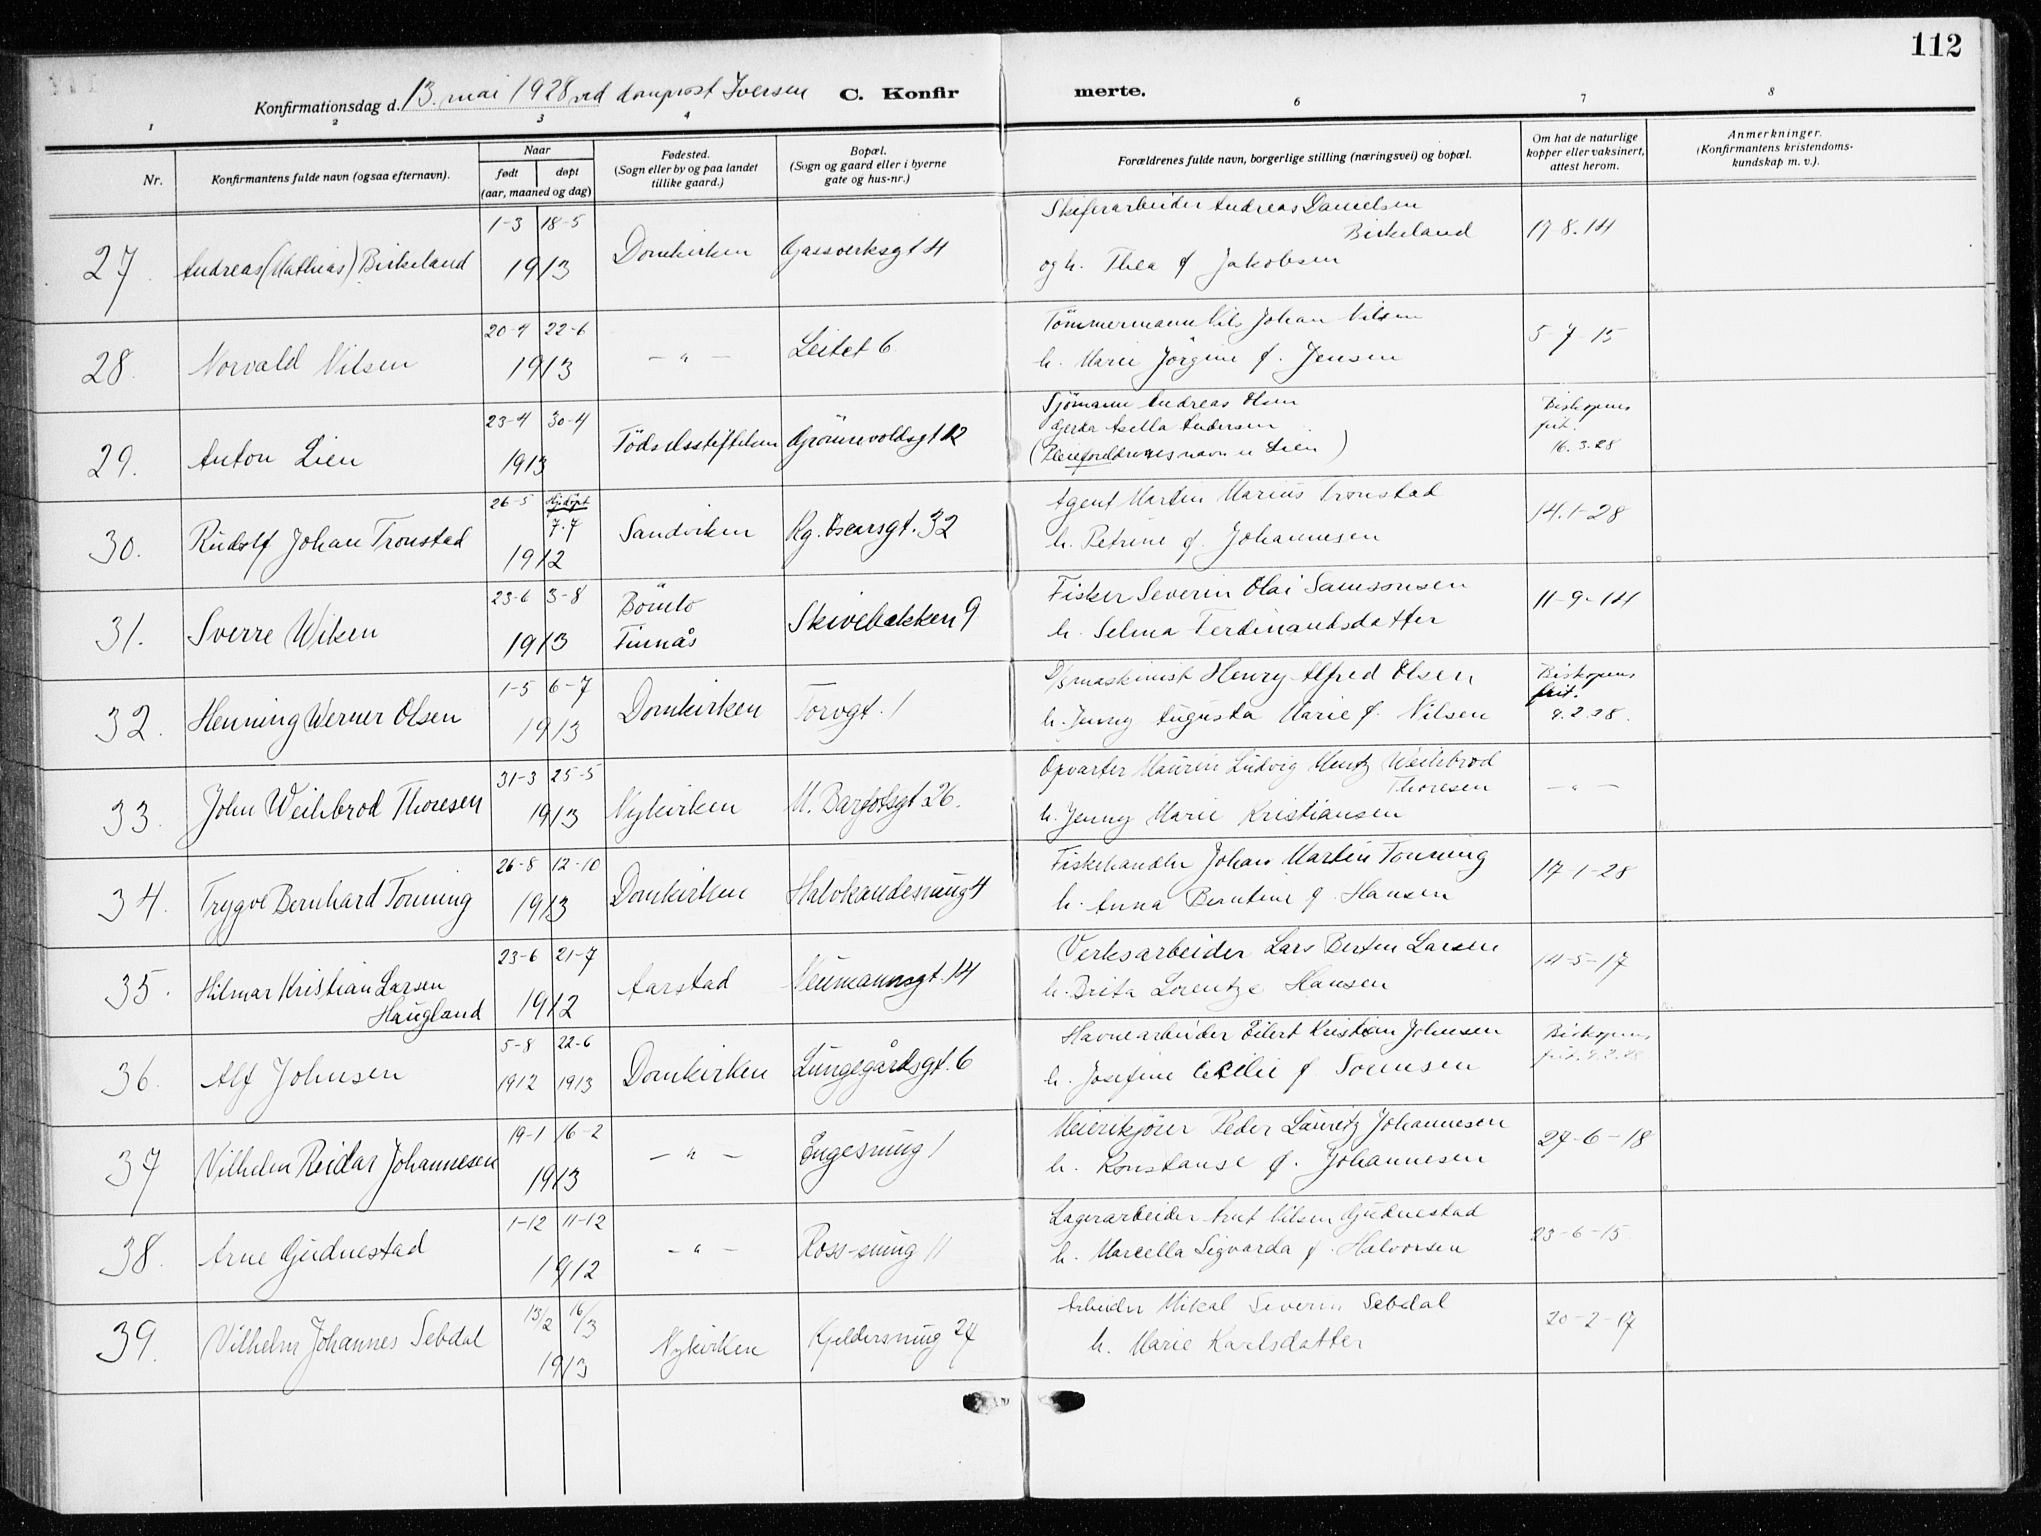 112
Konfirmationsdag d. 13. mai 1928 ved domprost Iversen C. Konfir merte.
1 2 3 4 6 7 8
Nr. Konfirmantens fulde navn (ogsaa efternavn). Naar født døpt (aar, maaned og dag) Fødested. (Sogn eller by og paa landet tillike gaard.) Bopæl. (Sogn og gaard eller i byerne gate og hus-nr.) Forældrenes fulde navn, borgerlige stilling (næringsvei) og bopæl. Om hat de naturlige kopper eller vaksinert, attest herom. Anmerkninger. (Konfirmantens kristendoms-kundskap m. v.).
1-3 18-5 Andreas Danielsen
27. Andreas (Mathias) Birkeland 1913 Domkirken Gassverksgt 4 Birkeland 19-8-14
og h. Thea f Jakobsen
20-4 22-6 Tömmermann Nils Johan Nilsen
28. Norvald Nilsen 1913 — " — Leitet 6 h. Marie Jörgine f. Jensen 5-7-15
23-4 30-4 Sjömann Andreas Olsen Biskopens
29. Anton Lien 1913 Födselsstiftelsen 12 Gerda Andersen frit.
(Pleieforeldrenes navn er Lien) 16.3.28
26-5 Hj.döpt 7.7 Agent Martin Marius Tronstad
30. Rudolf Johan Tronstad 1912 Sandviken Kg. Oscarsgt. 32 h. Petrine f. Johannesen 14.1-28
23-6 3-8 Bömlo Fisker Severin Olai Samsonsen
31. Sverre Wiken 1913 Finnås Skivebakken 9 h. Selma Ferdinandsdatter 11-9-14
1-5 6-7 D/s maskinist Henry Alfred Olsen Biskopens
32. Henning Werner Olsen 1913 Domkirken Torvgt. 1 h. Jenny Augusta Marie f. Nilsen frit. 9.2.28.
31-3 25-5 Opvarter Ludvig Mentz Weihbrod
33. John Weihbrod Thoresen 1913 Nykirken 26. Thoresen — " —
h. Jenny Marie Kristiansen
26-8 12-10 Fiskehandler Johan Martin Tonning
34. Trygve Bernhard Tonning 1913 Domkirken 4 h. Anna Berntine f Hansen 17-1-28
23-6 21-7 Verksarbeider Lars Bertin Larsen
35. Hilmar Kristian Larsen 1912 Aarstad Neumannsgt. 14 h. Brita Lorentze Hansen 14-5-17
Haugland
5-8 22-6 Havnearbeider Eilert Kristian Johnsen Biskopens
36. Alf Johnsen 1912 1913 Domkirken Lungegårdsgt. 6 h. Josefine Cecilie f frit. 9.2.28
19-1 16-2 Meierikjörer Peder Lauritz Johannesen
37 Vilhelm Reidar Johannesen 1913 — " — Engesmug 1 h. Konstanse f. Johannesen 27-6-18
1-12 11-12 Lagerarbeider Nilsen Gjudnestad
38. Arne Gjudnestad 1912 — " — Ross-smug 11 h. Marcella Sigvarda f. Halvorsen 23-6-15
13/2 16/3 Arbeider Mikal Severin Sebdal
39. Vilhelm Johannes Sebdal 1913 Nykirken Kjeldersmug 27 h. Marie Karlsdatter 20-2-17